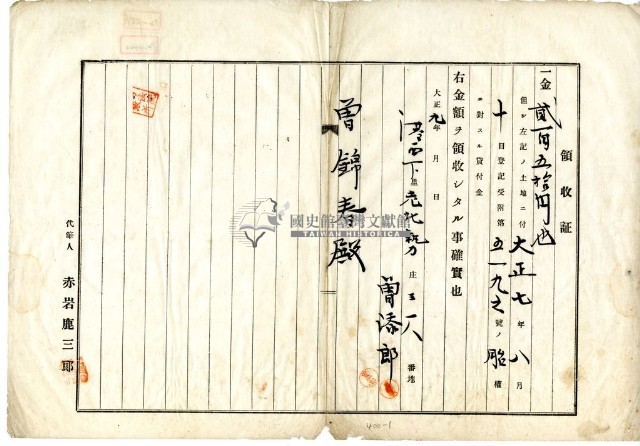 領收証
一金貳百五拾円也
但シ左記ノ土地ニ付大正七年八月
十日登記受附第五一九之號ノ胎權
ニ對スル貸付金
右金額ヲ領收シタル事確實也
大正九年 月 日
港西下里 庄 三一八番地
曽添郎
曽錦春殿
代筆人 赤岩鹿三郎
國史館臺灣文獻館
TAIWAN HISTORICA
400-1